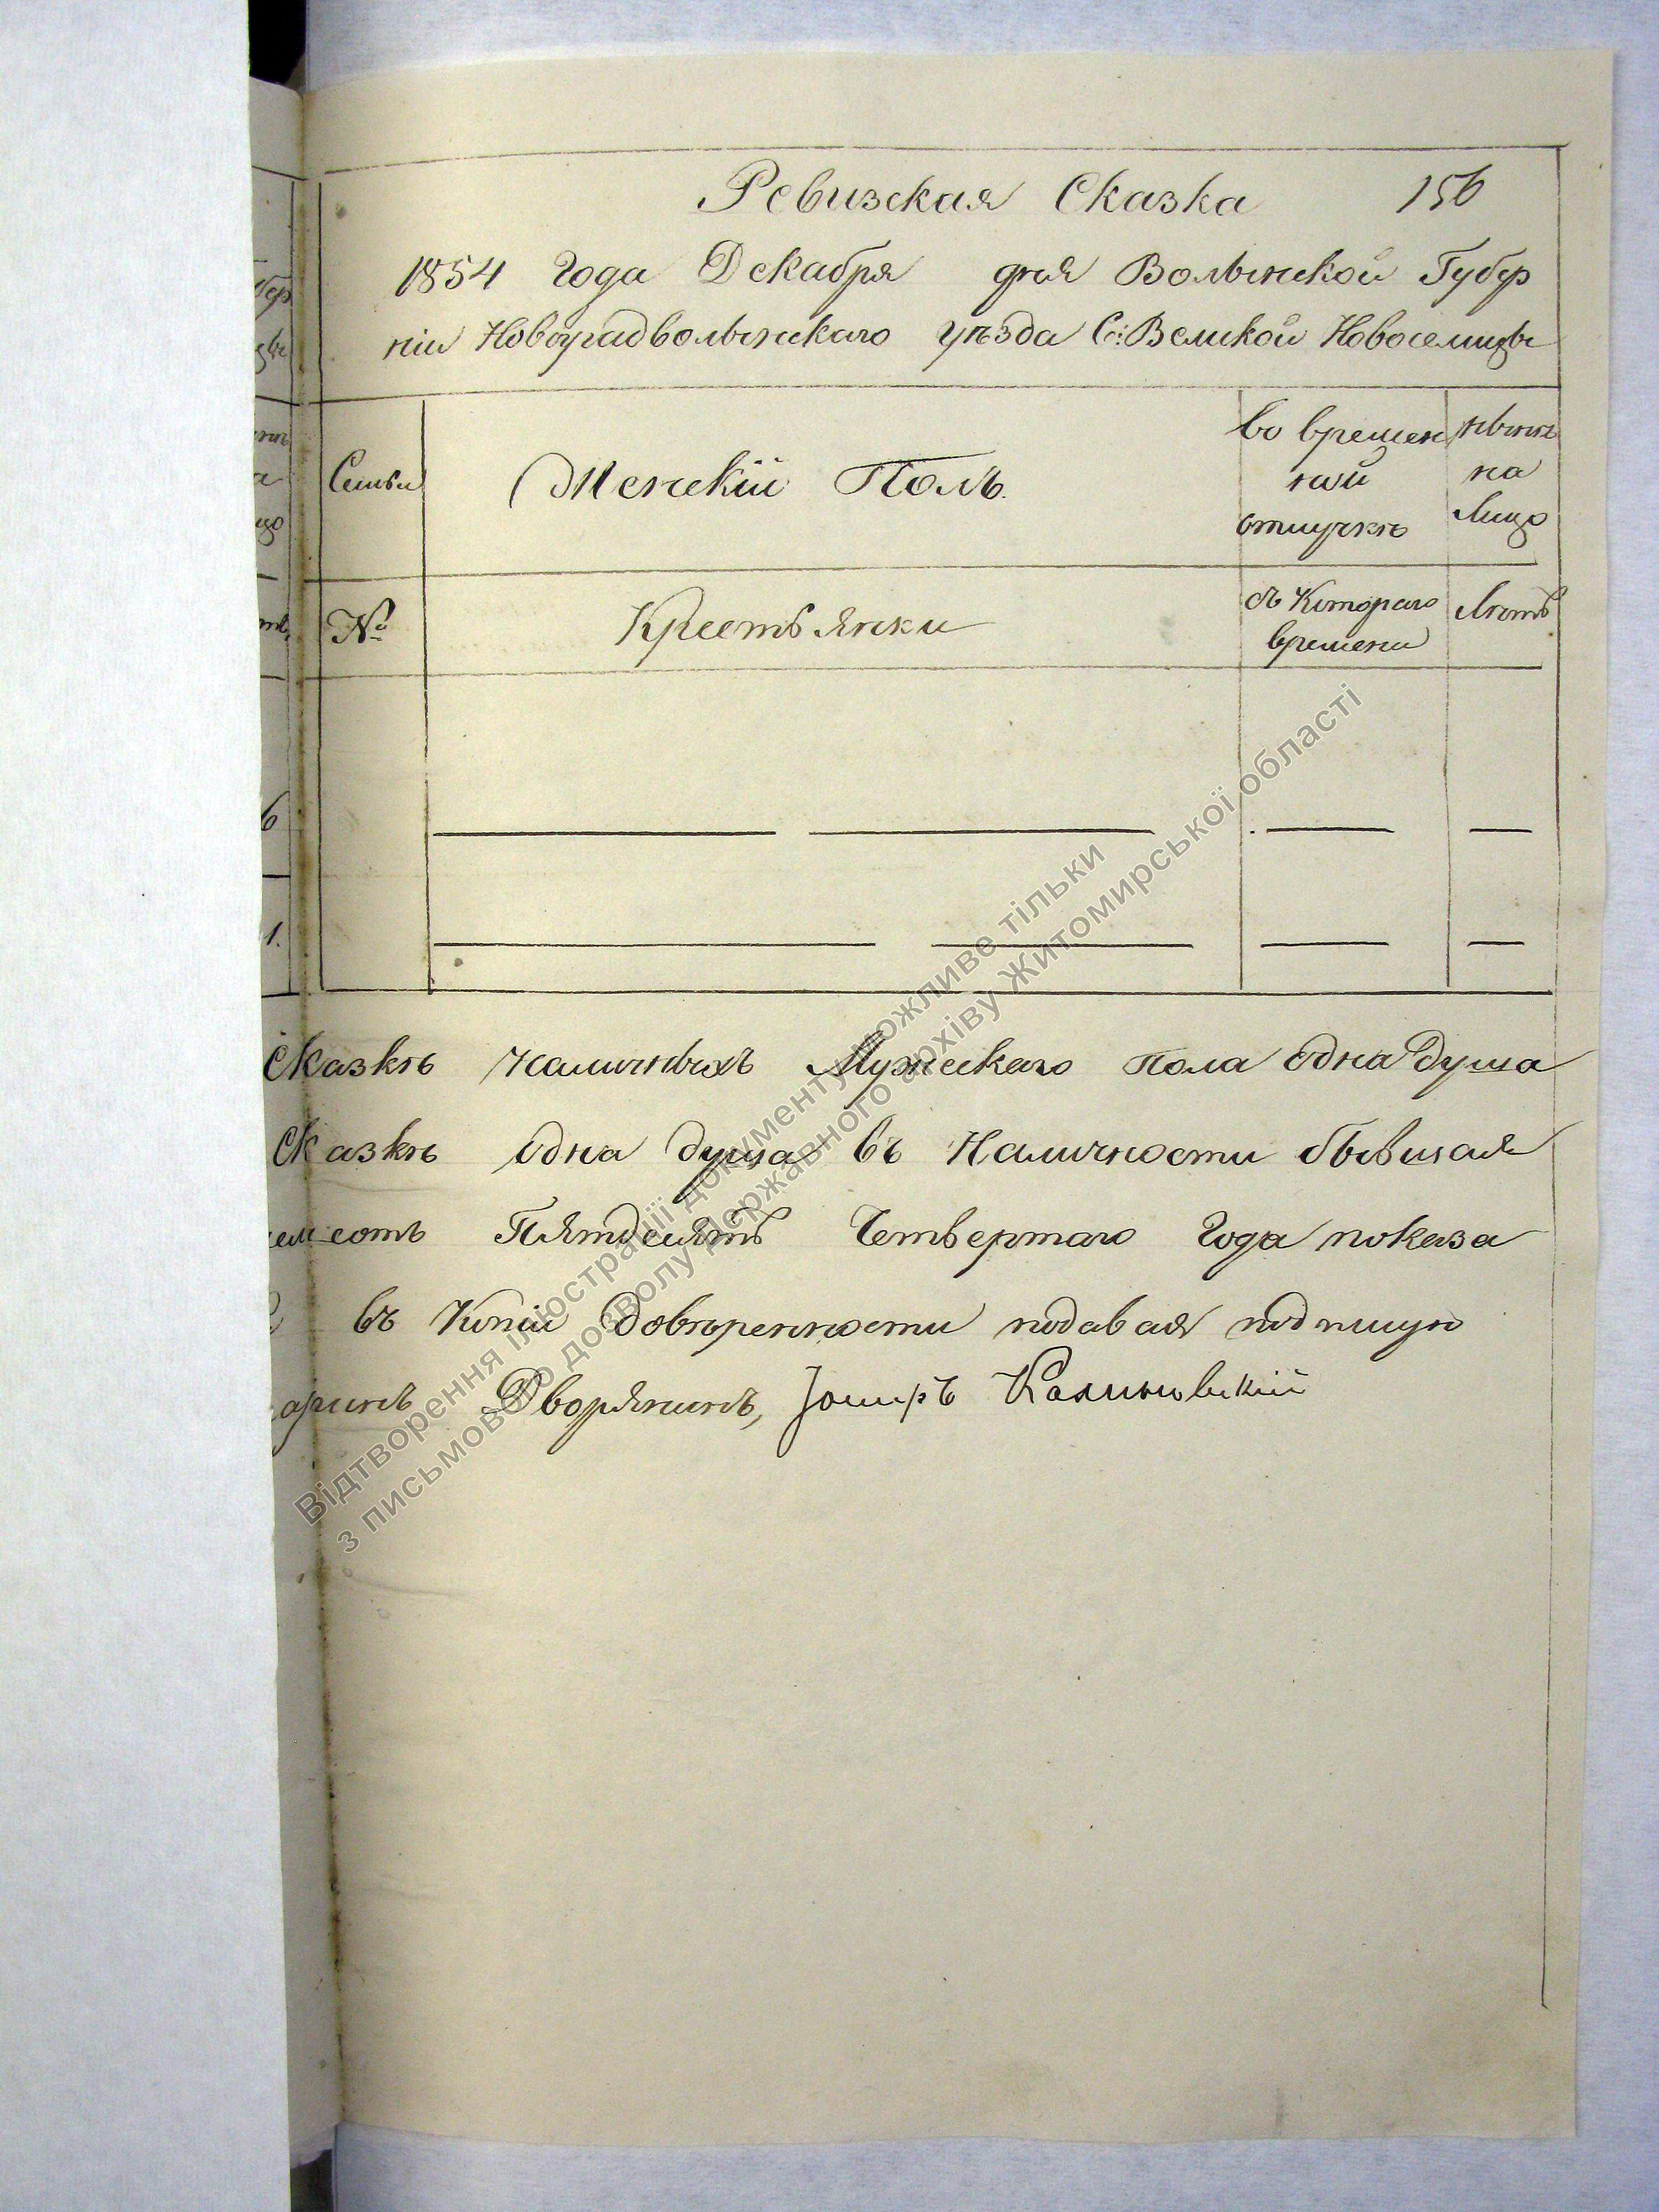 Ревизская Сказка 156
1854 Года Декабря дня Волынской Губер
ніи Новоградволынскаго уѣзда С: Великой Новоселицы
Семьи
Женскій Полъ.
во времен
ной
отлучкѣ
нынѣ
на
Лицо
№
Крестьянки
съ Котораго
времени
Лѣтъ
6
1.
Сказкѣ наличныхъ Мужескаго пола одна душа
Сказкѣ одна душа въ Наличности бывшая
сотъ Пятдесятъ Четвертаго Года показа
въ Копіи Довѣренности подавая подпишую
Дворянинъ, Калиновскій
Відтворення ілюстрації документу можливе тільки
з письмового дозволу Державного архіву Житомирської області